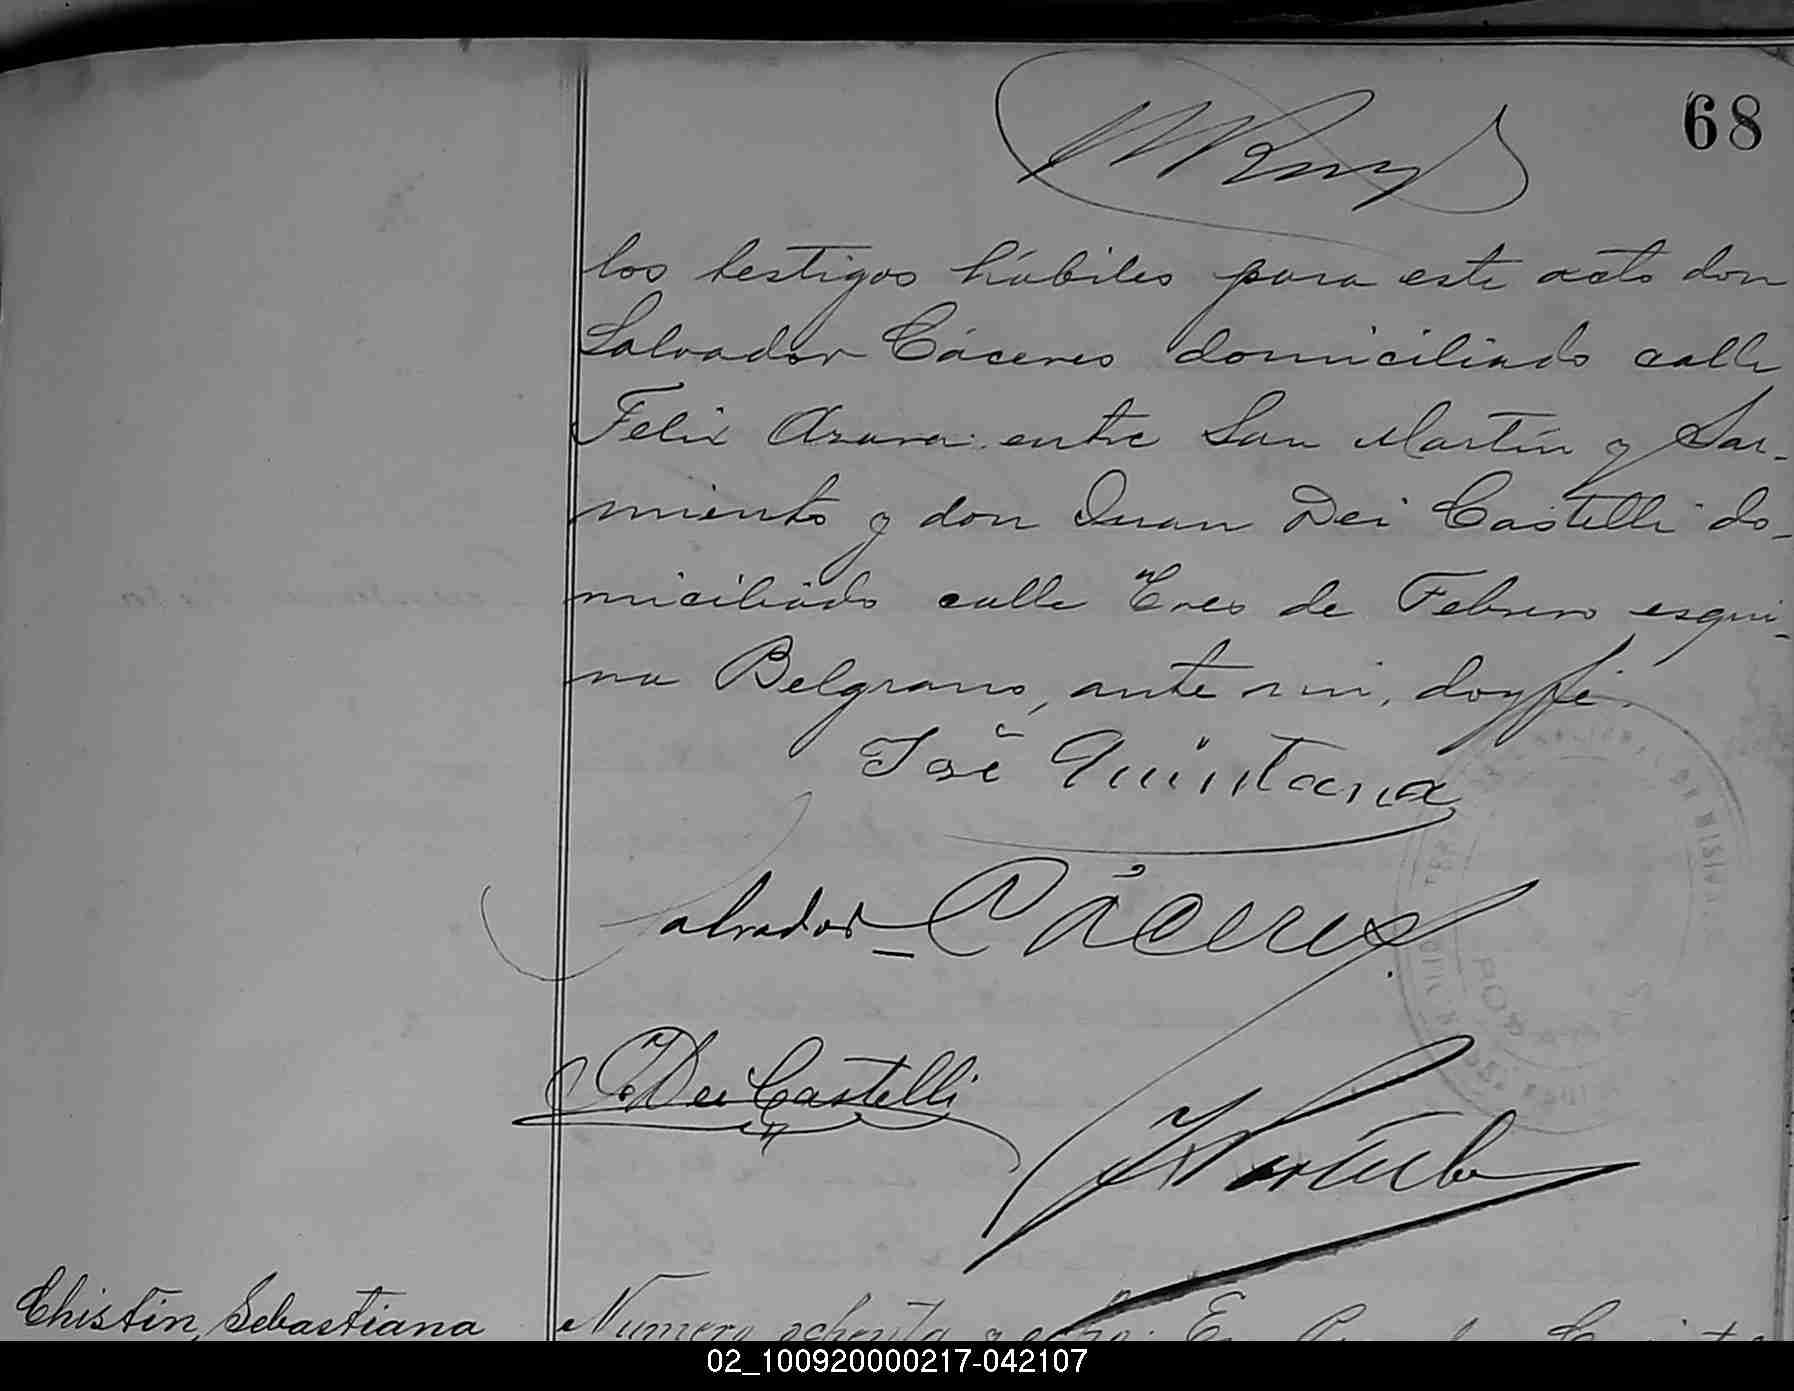 68
los testigos hábiles para este acto don
Salvador Cáceres domiciliado calle
Felix Azara entre San Martín y Sar-
miento y don Juan Dei Castelli do-
miciliado calle Tres de Febrero esqui-
na Belgrano, ante mi, doy fé.
José Quintana
Salvador Cáceres
Dei Castelli
Chistin, Sebastiana
Número ochenta y
02_100920000217-042107